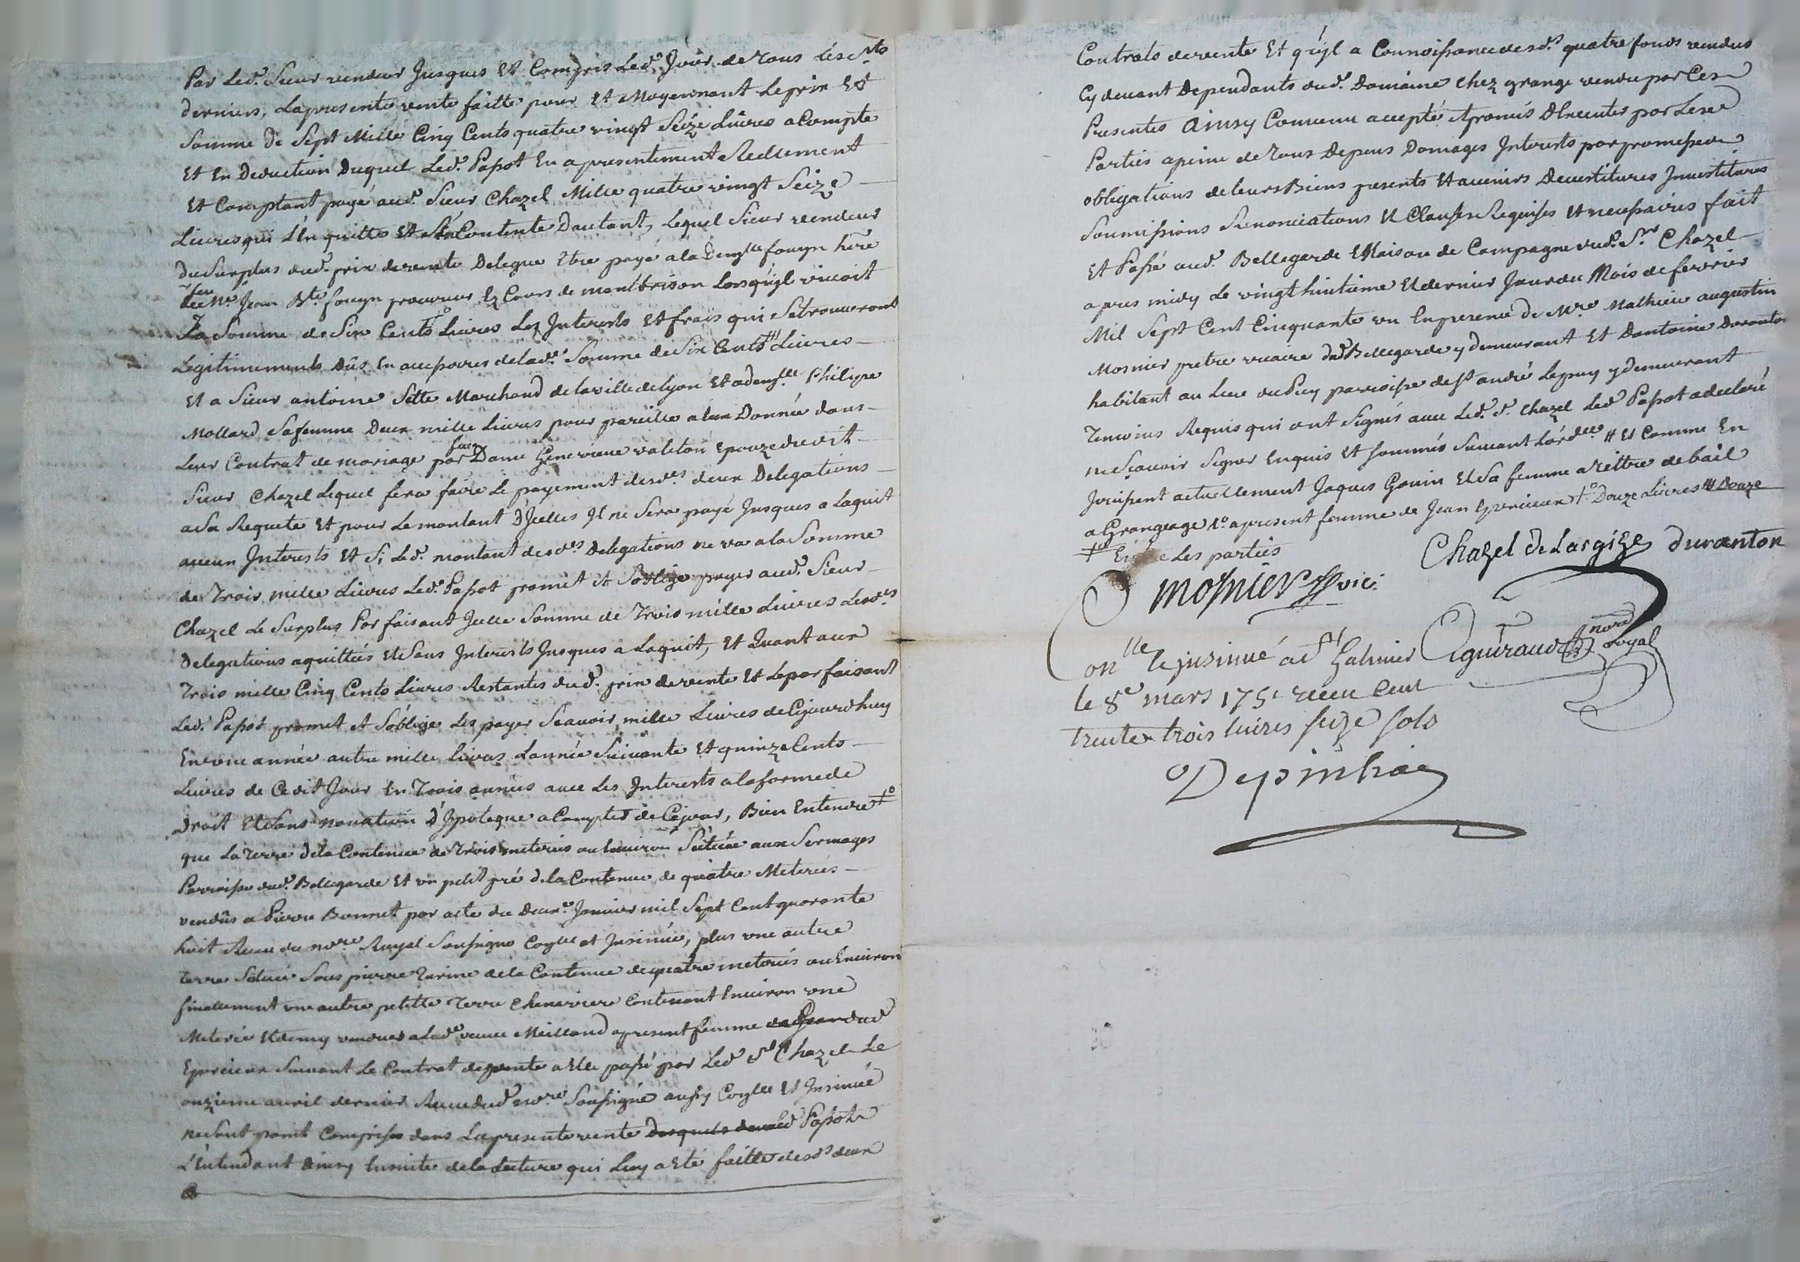 Par Led.t Sieur vendeur Jusques Et Compris Led.t Jour de Tous Les S.ts
derniers, La presente vente faitte pour Et Moyennant Le prix Et
Somme de Sept Mille Cinq Cents quatre vingt Seize Livres a Compte
Et En Deduction Duquel Led.t Papot En a presentement Reellement
Et Comptant payé aud.t Sieur Chazel Mille quatre vingt Seize
Livres qui L'En quitte Et S'En Contente Dautant, Lequel Sieur vendeur
Du Surplus dud.t prix de vente Delegue Etre payé a la Dem.lle fouyn
feu M.e Jean B.te fouyn procureur Ez Cours de montbrison Lorsqu'jl vivoit
La Somme de Six Cents Livres Les Interests Et frais qui Se trouveront
Legitimements Dûs En accessoires de Lad.e Somme de Six Cents Livres
Et a Sieur antoine Sette Marchand de la ville de Lyon Et a dem.lle Philipe
Mollard Sa femme Deux mille Livres pour pareille a Eux Donnée dans
Leur Contrat de mariage par Dame Genevieve valeton Epouze dudit
Sieur Chazel Lequel fera faire Le payement desd.es deux Delegations
a Sa Requete Et pour Le montant D'Jcelles Jl ne Sera payé Jusques a Laquit
aucun Interests Et Si Led.t montant desd.es Delegations ne va a la Somme
de Trois mille Livres Led.t Papot promet Et S'oblige payer aud.t Sieur
Chazel Le Surplus Parfaisant Jcelle Somme de Trois mille Livres Lesd.es
Delegations aquittées Et Sans Interests Jusques a Laquit, Et Quant aux
Trois mille Cinq Cents Livres Restantes dud.t prix de vente Et Le parfaisant
Led.t Papot promet Et S'oblige Les payer Scavoir mille Livres de Cejourdhuy
En une année autre mille Livres Lannée Suivante Et quinze Cents
Livres de Cedit Jour En Trois années avec Les Interests a la forme de
droit Et Sans novation D'Jpoteque a Compter de Cejour, Bien Entendu
que La Terre de la Contenue de Trois meterées ou Environ Sctituée aux Sermages
Parroisse dud.t Bellegarde Et un petit pré de la Contenue de quatre Meterées
vendûs a Pierre Bonnet par acte du Deux.e Janvier mil Sept Cent quarante
huit Receu du no.re Royal Soussigné Con.lle et Jnsinué, plus une autre
terre Scituée Sous pierre de la Contenue de quatre meterées ou Environ
finallement une autre petitte Terre Cheneviere Contenant Environ une
Meterée Et demy vendues a Lad.e veuve Meilland apresent femme dud.t
Eperieux Suivant Le Contrat de vente a Elle passé par Led.t S.r Chazel Le
onzieme avril dernier Receu dud.t no.re Soussigné aussy Con.lle Et Jnsinué
ne Sont point Comprises dans La presente vente Papot
L'Entendant Ainsy Ensuite de la Lecture qui Luy a Eté faitte desd.s deux
Contrats de vente Et qu'jl a Connoissance desd.s quatre fonds vendus
Cy devant Dependants dud.t Domaine chez grange vendu par Ces
Presentes Ainsy Convenu accepté Et promis D'Executer par Les
Parties a peine de Tous Depens Domages Interests par promesses
obligations de leurs Biens presents Et avenirs Devestitures Jnvestitures
Soumissions Renonciations Et Clauses Requises Et necessaires fait
Et Passé aud.t Bellegarde Maison de Campagne dud.t S.r Chazel
apres midy Le vingt huitieme Et dernier Jour du Mois de fevrier
Mil Sept Cent Cinquante un En presence de M.re Mathieu augustin
Mosnier pretre vicaire dud.t Bellegarde y demeurant Et D'antoine duranton
habitant au Lieu du Puy parroisse de S.t andré Le puy y demeurant
Temoins Requis qui ont Signés avec Led.t S.r Chazel Led.t Papot a declaré
ne Sçavoir Signer Enquis Et Sommés Suivant Lord.ce Et Comme En
Jouissent actuellement Jaques Gouin Et Sa femme a tittre de bail
a Grangeage apresent femme de Jean Eperieux Douze Livres Douze
Entre Les parties
Chazel de Largize duranton
Mosnier vic.
Con.lle Et jnsinué a S.t Galmier Eguiraud no.re royal
le 8.e mars 1751 receu cent
trente trois livres seize sols
Depinhac